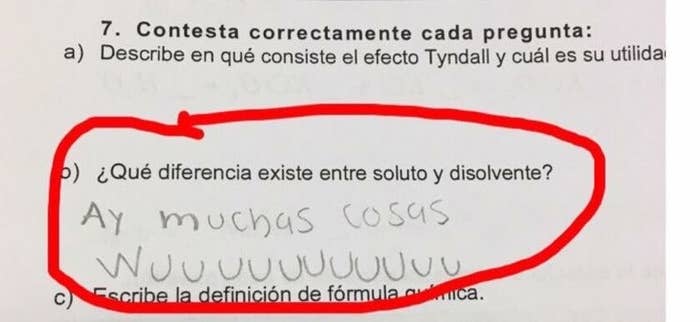 7. Contesta correctamente cada pregunta:
a) Describe en qué consiste el efecto Tyndall y cuál es su utilida
b) ¿Qué diferencia existe entre soluto y disolvente?
Ay muchas cosas
Wuuuuuuuuuuu
c) Escribe la definición de fórmula química.